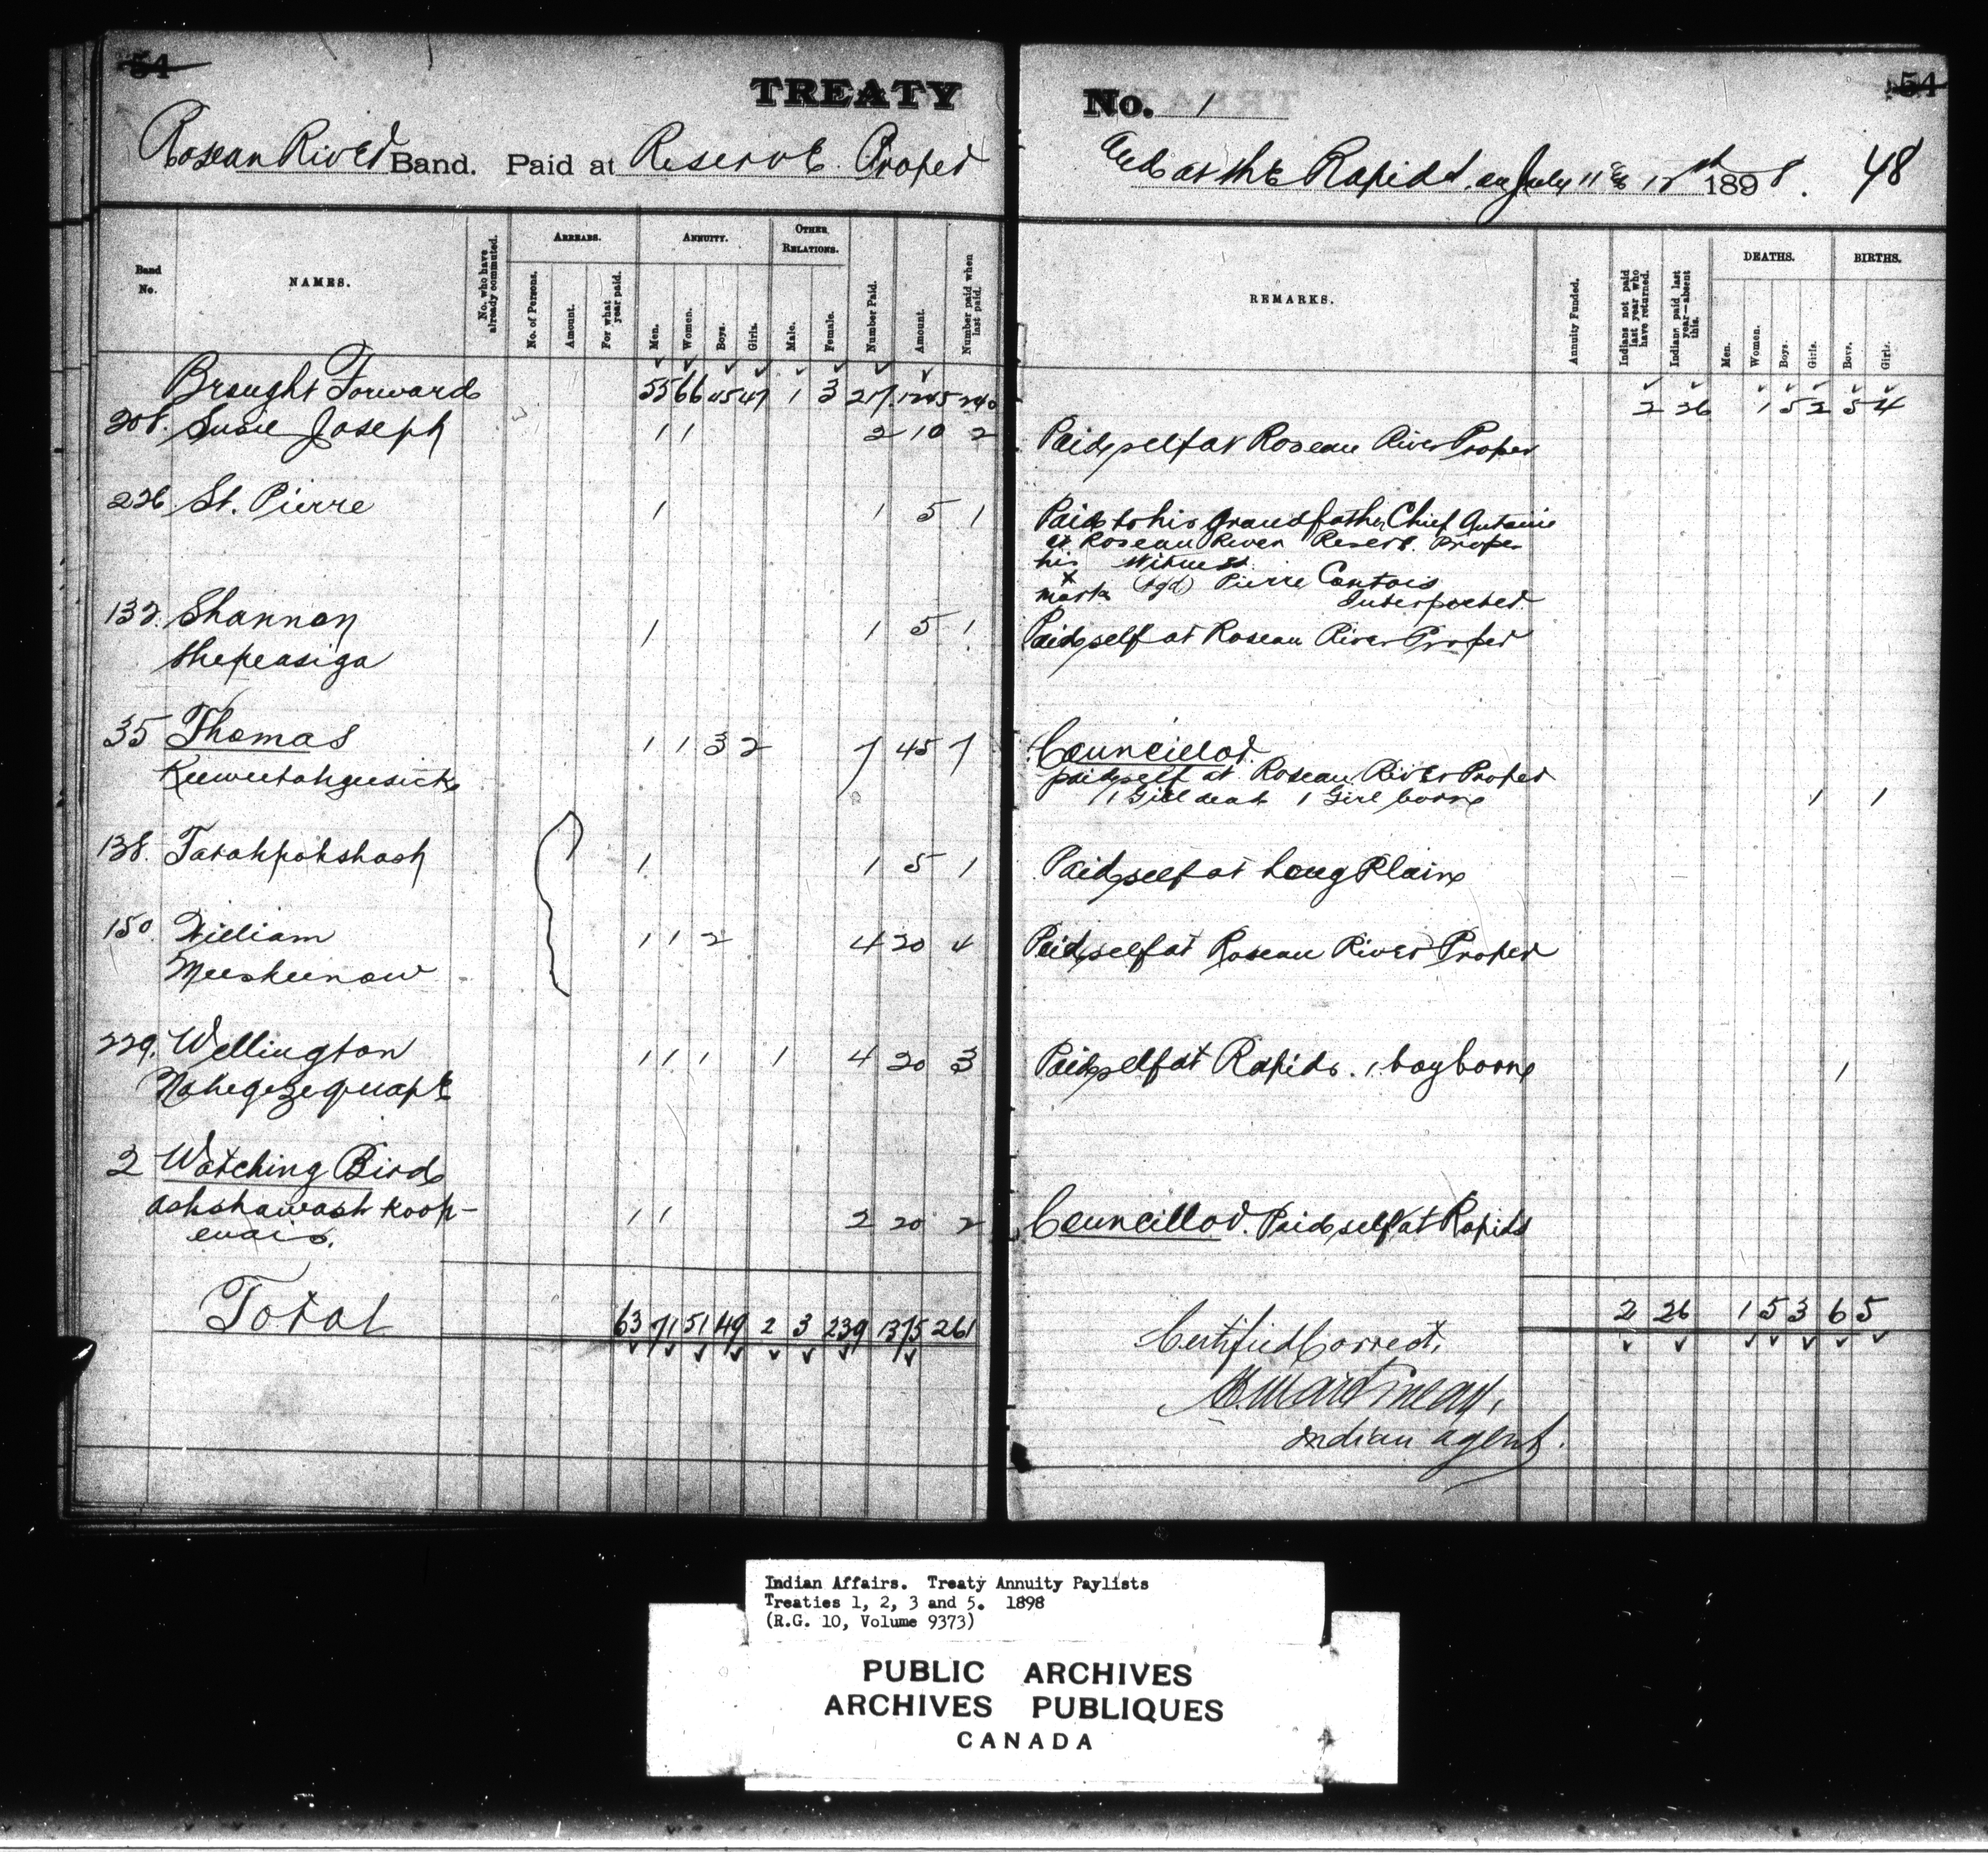 54
TREATY
Roseau River Band. Paid at Reserve Proper
Band No.
NAMES.
No. who have already commuted.
ARREARS.
No. of Persons.
Amount.
For what year paid.
ANNUITY.
Men.
Women.
Boys.
Girls.
OTHER RELATIONS.
Male.
Female.
Number Paid.
Amount.
Number paid when last paid.
Brought Forward 55 66 45 47 1 3 217 1245 240
208. Susie Joseph 1 1 2 10 2
226 St. Pierre 1 1 5 1
132. Shannon 1 1 5 1
Shepeasiga
35 Thomas 1 1 3 2 7 45 7
Keeweetahgeesick
138. Tatahpohshash 1 1 5 1
150. William 1 1 2 4 20 4
Meeskeenow
229. Wellington 1 1 1 1 4 20 3
Nahegezequape
2 Watching Bird
Ashshawash koop- 1 1 2 20 2
enais.
Total 63 71 51 49 2 3 239 1375 261
54
No. 1
and at the Rapids, on July 11 & 12th 1898. 48
REMARKS.
Annuity Funded.
Indians not paid last year who have returned.
Indians paid last year—absent this.
DEATHS.
Men.
Women.
Boys.
Girls.
BIRTHS.
Boys.
Girls.
2 26 1 5 2 5 4
Paid self at Roseau River Proper
Paid to his Grandfather Chief Antoine
at Roseau River Reserve Proper
his Witness
x
mark (sgd) Pierre Contois
Interpreter.
Paid self at Roseau River Proper
Councillor.
paid self at Roseau River Proper
1 Girl dead 1 Girl born 1 1
Paid self at Long Plain
Paid self at Roseau River Proper
Paid self at Rapids. 1 boy born 1
Councillor. Paid self at Rapids
2 26 1 5 3 6 5
Certified Correct,
Indian Agent.
Indian Affairs. Treaty Annuity Paylists
Treaties 1, 2, 3 and 5. 1898
(R.G. 10, Volume 9373)
PUBLIC ARCHIVES
ARCHIVES PUBLIQUES
CANADA